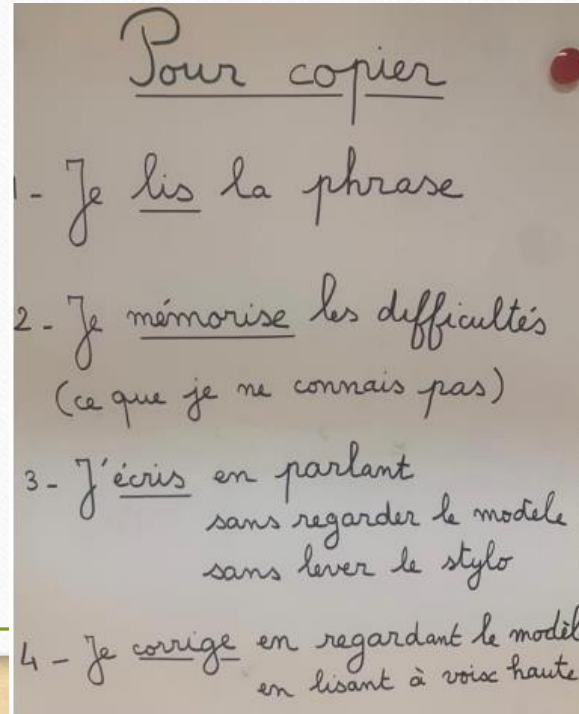 Pour copier
1 - Je lis la phrase
2 - Je mémorise les difficultés
(ce que je ne connais pas)
3 - J'écris en parlant
sans regarder le modèle
sans lever le stylo
4 - Je corrige en regardant le modèl
en lisant à voix haute